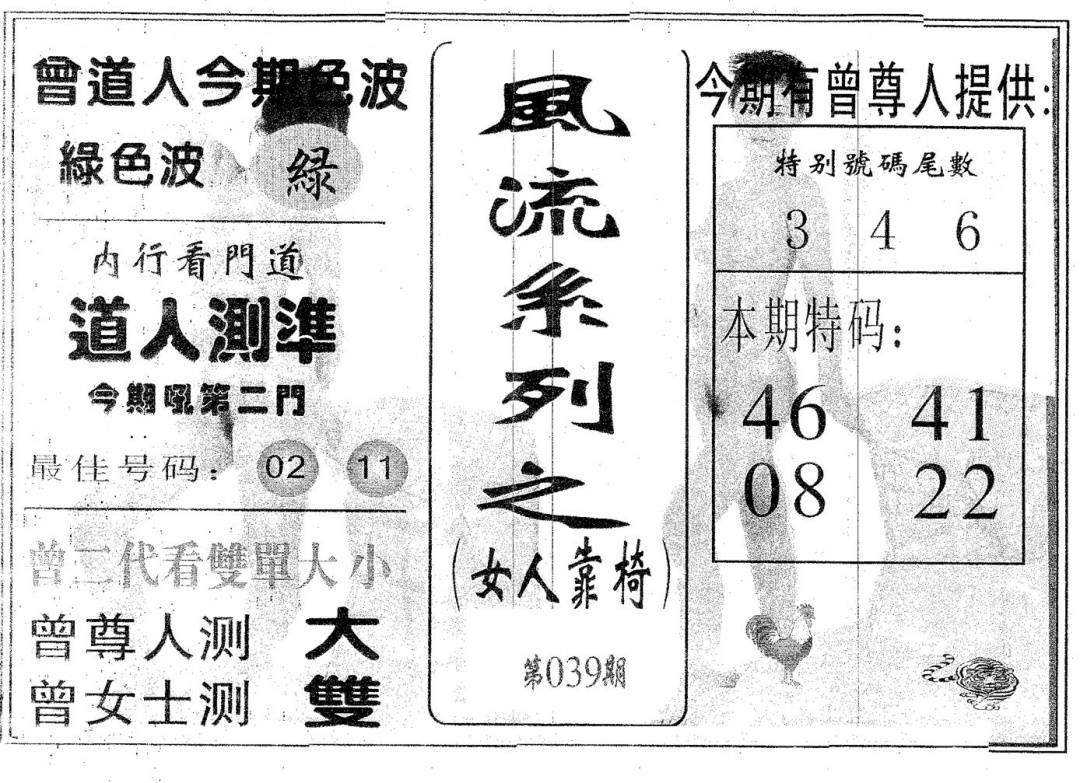 曾道人今期色波
綠色波
緑
内行看門道
道人測準
今期吼第二門
最佳号码：
02
11
曾二代看雙單大小
曾尊人测
大
曾女士测
雙
風流系列之
(女人靠椅)
第039期
今期有曾尊人提供:
特别號碼尾數
3 4 6
本期特码:
46 41
08 22